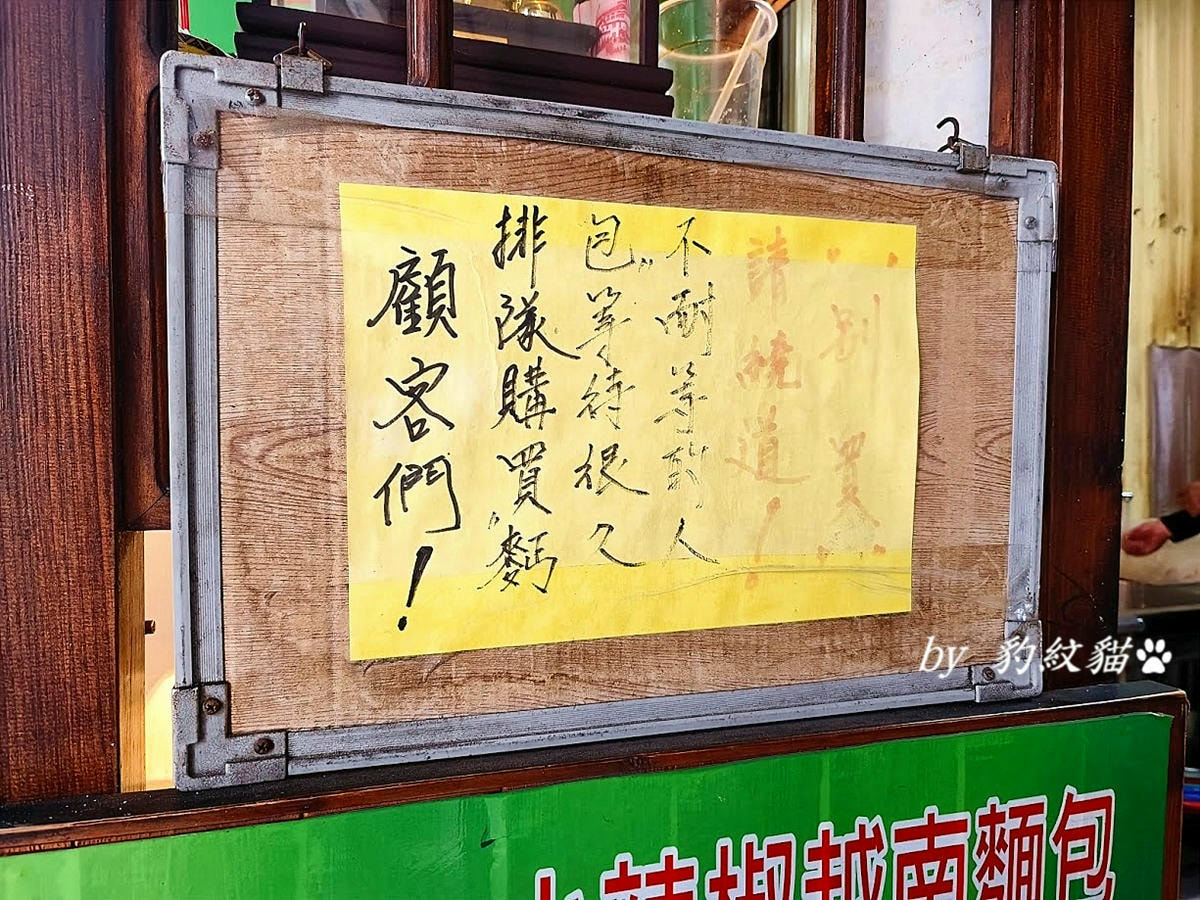 顧客們！
排隊購買"麪
包"等待很久
不耐等的人
請繞道！
"別買"
辣椒越南麵包
by 豹紋貓